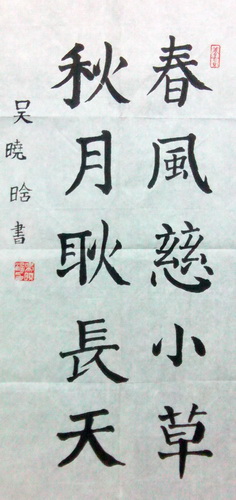 春風慈小草
秋月耿長天
吳曉晗書